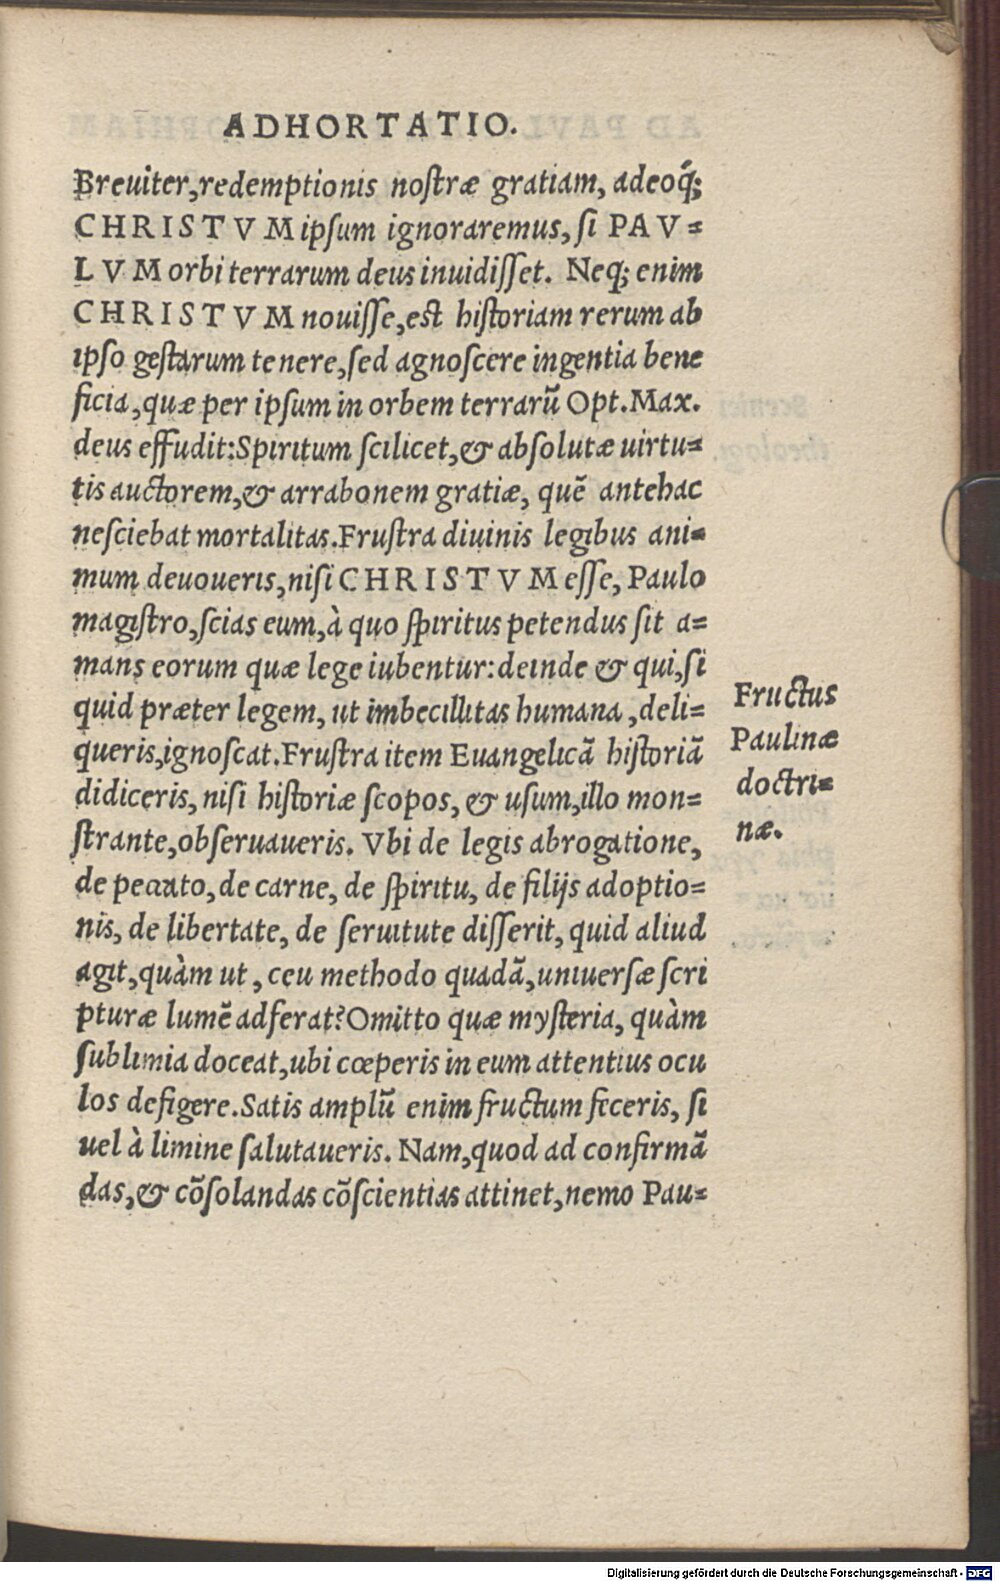 ADHORTATIO.
Breuiter, redemptionis noſtræ gratiam, adeoq́;
CHRISTVM ipſum ignoraremus, ſi PAV=
LVM orbi terrarum deus inuidiſſet. Neq; enim
CHRISTVM nouiſſe, eſt hiſtoriam rerum ab
ipſo geſtarum tenere, ſed agnoſcere ingentia bene
ficia, quæ per ipſum in orbem terrarũ Opt. Max.
deus effudit: Spiritum ſcilicet, & abſolutæ uirtu=
tis auctorem, & arrabonem gratiæ, quẽ antehac
neſciebat mortalitas. Fruſtra diuinis legibus ani=
mum deuoueris, niſi CHRISTVM eſſe, Paulo
magiſtro, ſcias eum, à quo ſpiritus petendus ſit a=
mans eorum quæ lege iubentur: deinde & qui, ſi
quid præter legem, ut imbecillitas humana, deli=
queris, ignoſcat. Fruſtra item Euangelicã hiſtoriã
didiceris, niſi hiſtoriæ ſcopos, & uſum, illo mon=
ſtrante, obſeruaueris. Vbi de legis abrogatione,
de peccato, de carne, de ſpiritu, de filijs adoptio=
nis, de libertate, de ſeruitute diſſerit, quid aliud
agit, quàm ut, ceu methodo quadã, uniuerſæ ſcri
pturæ lumẽ adferat? Omitto quæ myſteria, quàm
ſublimia doceat, ubi cœperis in eum attentius ocu
los defigere. Satis amplũ enim fructum feceris, ſi
uel à limine ſalutaueris. Nam, quod ad confirmã
das, & cõſolandas cõſcientias attinet, nemo Pau=
Fructus
Paulinæ
doctri=
næ.
Digitalisierung gefördert durch die Deutsche Forschungsgemeinschaft - DFG